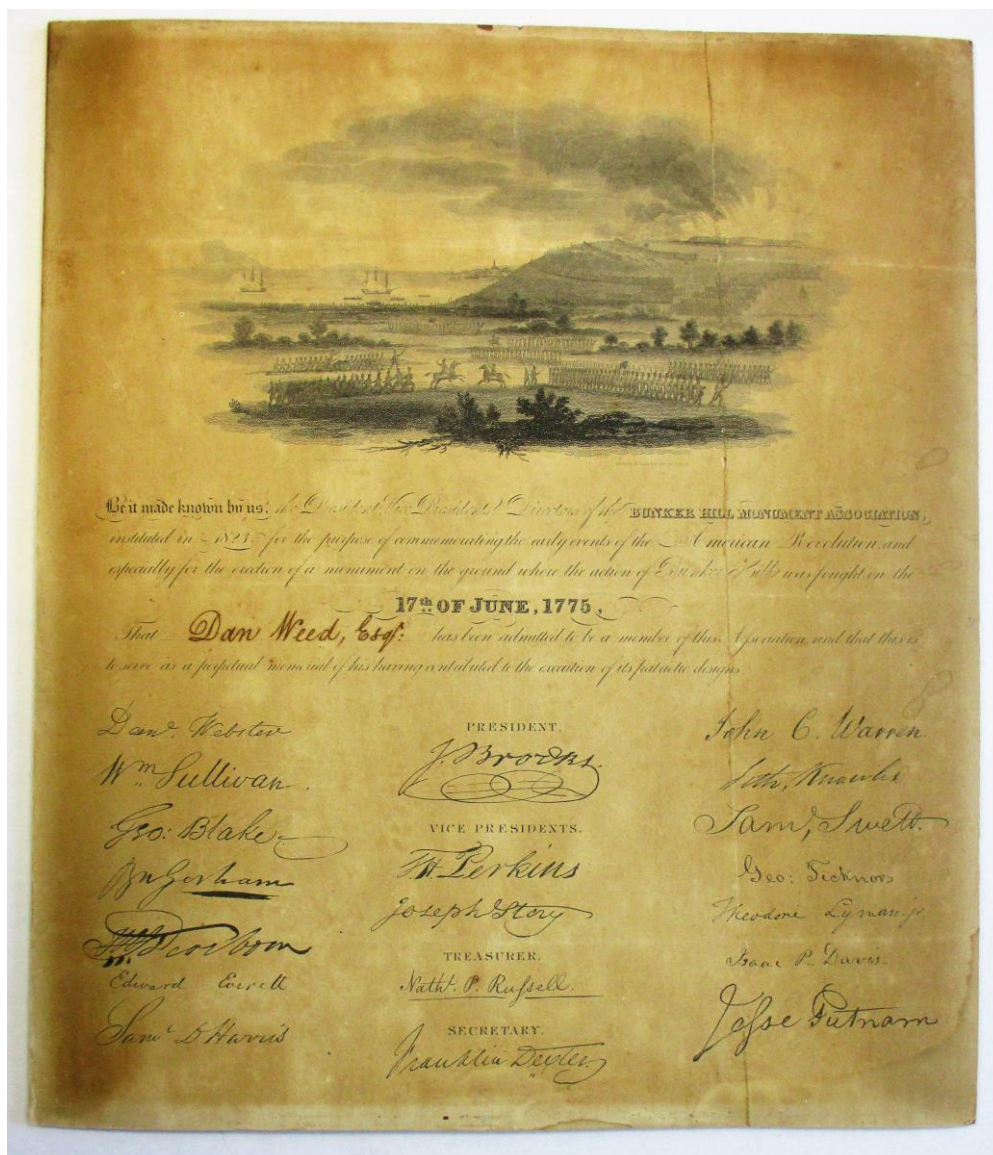 Be it made known by us, the President, Vice Presidents & Directors of the BUNKER HILL MONUMENT ASSOCIATION,
instituted in 1823, for the purpose of commemorating the early events of the American Revolution, and
especially for the erection of a monument on the ground where the action of Bunker Hill was fought on the
17th OF JUNE, 1775,
That Dan Weed, Esqr. has been admitted to be a member of this Association, and that this is
to serve as a perpetual memorial of his having contributed to the execution of its patriotic designs.
Danl. Webster
Wm Sullivan
Geo: Blake
Bn Gorham
Dearborn
Edward Everett
Saml D Harris
PRESIDENT,
J. Brooks.
VICE PRESIDENTS.
T.H. Perkins
Joseph Story
TREASURER,
Nathl. P. Russell.
SECRETARY,
Franklin Dexter
John C. Warren
Seth Knowles
Saml, Swett.
Geo: Ticknor
Theodore Lyman jr.
Isaac P. Davis.
Jesse Putnam